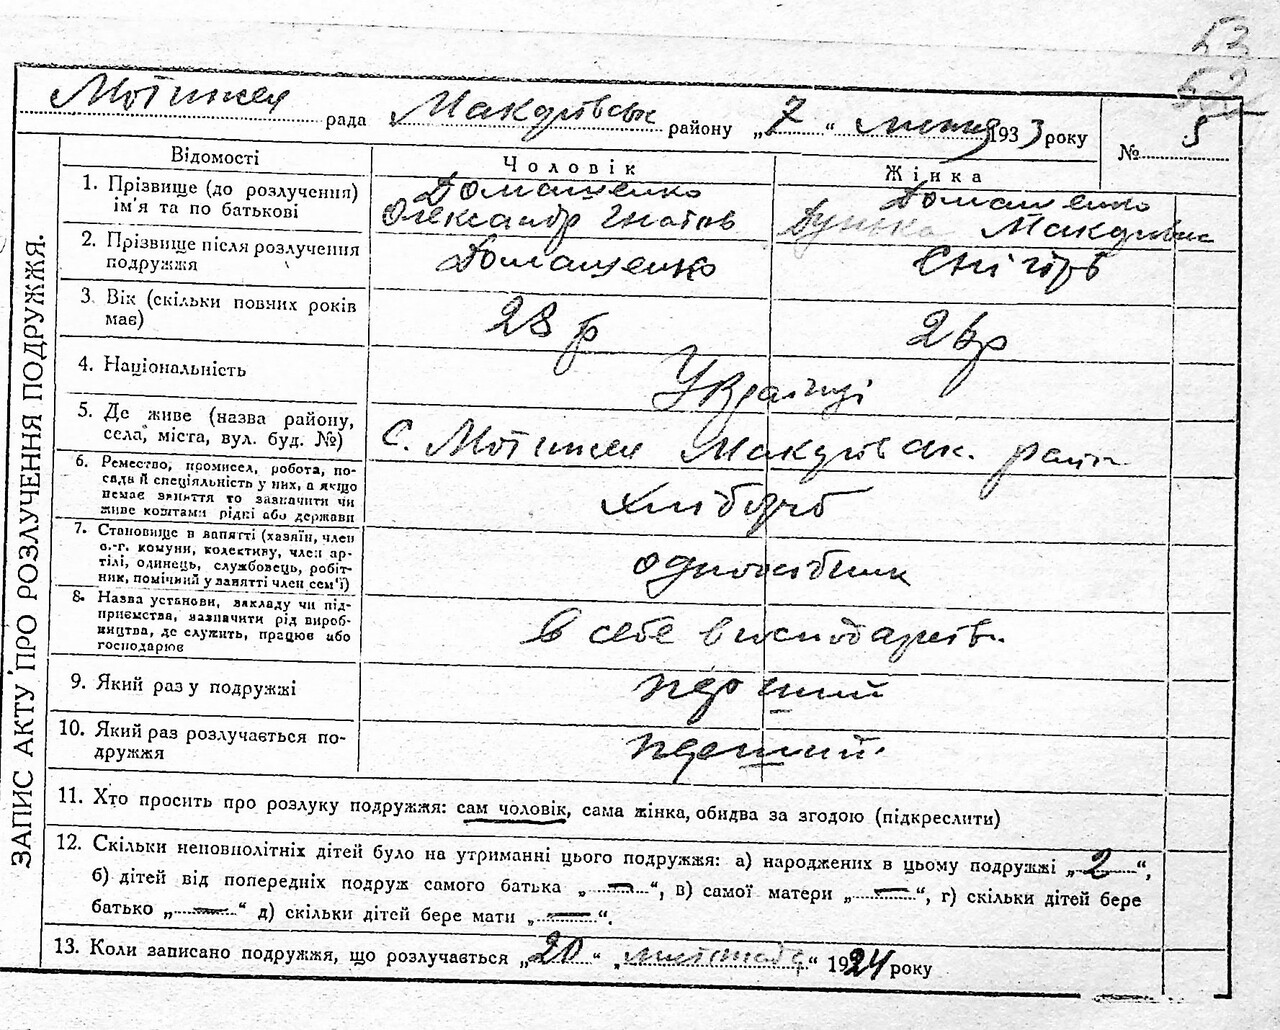 53
52
Мотижея рада Макарівськ району „7“ лютня 1933 року
№ 5
ЗАПИС АКТУ ПРО РОЗЛУЧЕННЯ ПОДРУЖЖЯ.
Відомості Чоловік Жінка
1. Прізвище (до розлучення) ім'я та по батькові
Домашенко
Олександр Гнатов
Домашенко
Дунька Макаровна
2. Прізвище після розлучення подружжя
Домашенко Снігірь
3. Вік (скільки повних років має)
28 р 26р
4. Національність
Українці
5. Де живе (назва району,
села, міста, вул. буд. №)
с. Мотижея Макарівськ. район
6. Ремество, промисел, робота, по-
сада й спеціяльність у них, а якщо
немає заняття то зазначити чи
живе коштами рідні або держави
Хлібороб
7. Становище в занятті (хазяїн, член
с.-г. комуни, колективу, член ар-
тілі, одинець, службовець, робіт-
ник, помічний у занятті член сем'ї)
одноосібник
8. Назва установи, закладу чи під-
приємства, зазначити рід вироб-
ництва, де служить, працює або
господарює
в себе в господарстві.
9. Який раз у подружжі
перший
10. Який раз розлучається по-
дружжя
перший.
11. Хто просить про розлуку подружжя: сам чоловік, сама жінка, обидва за згодою (підкреслити)
12. Скільки неповнолітніх дітей було на утриманні цього подружжя: а) народжених в цьому подружжі „2“,
б) дітей від попередніх подруж самого батька „—“, в) самої матери „—“, г) скільки дітей бере
батько „—“ д) скільки дітей бере мати „—“.
13. Коли записано подружжя, що розлучається „20“ „листопада“ 1924 року